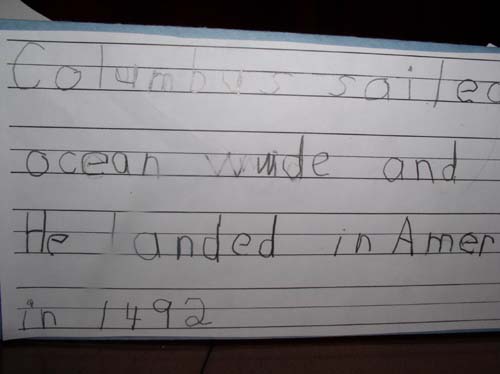 Columbus sailed
ocean wide and
He landed in Amer
in 1492